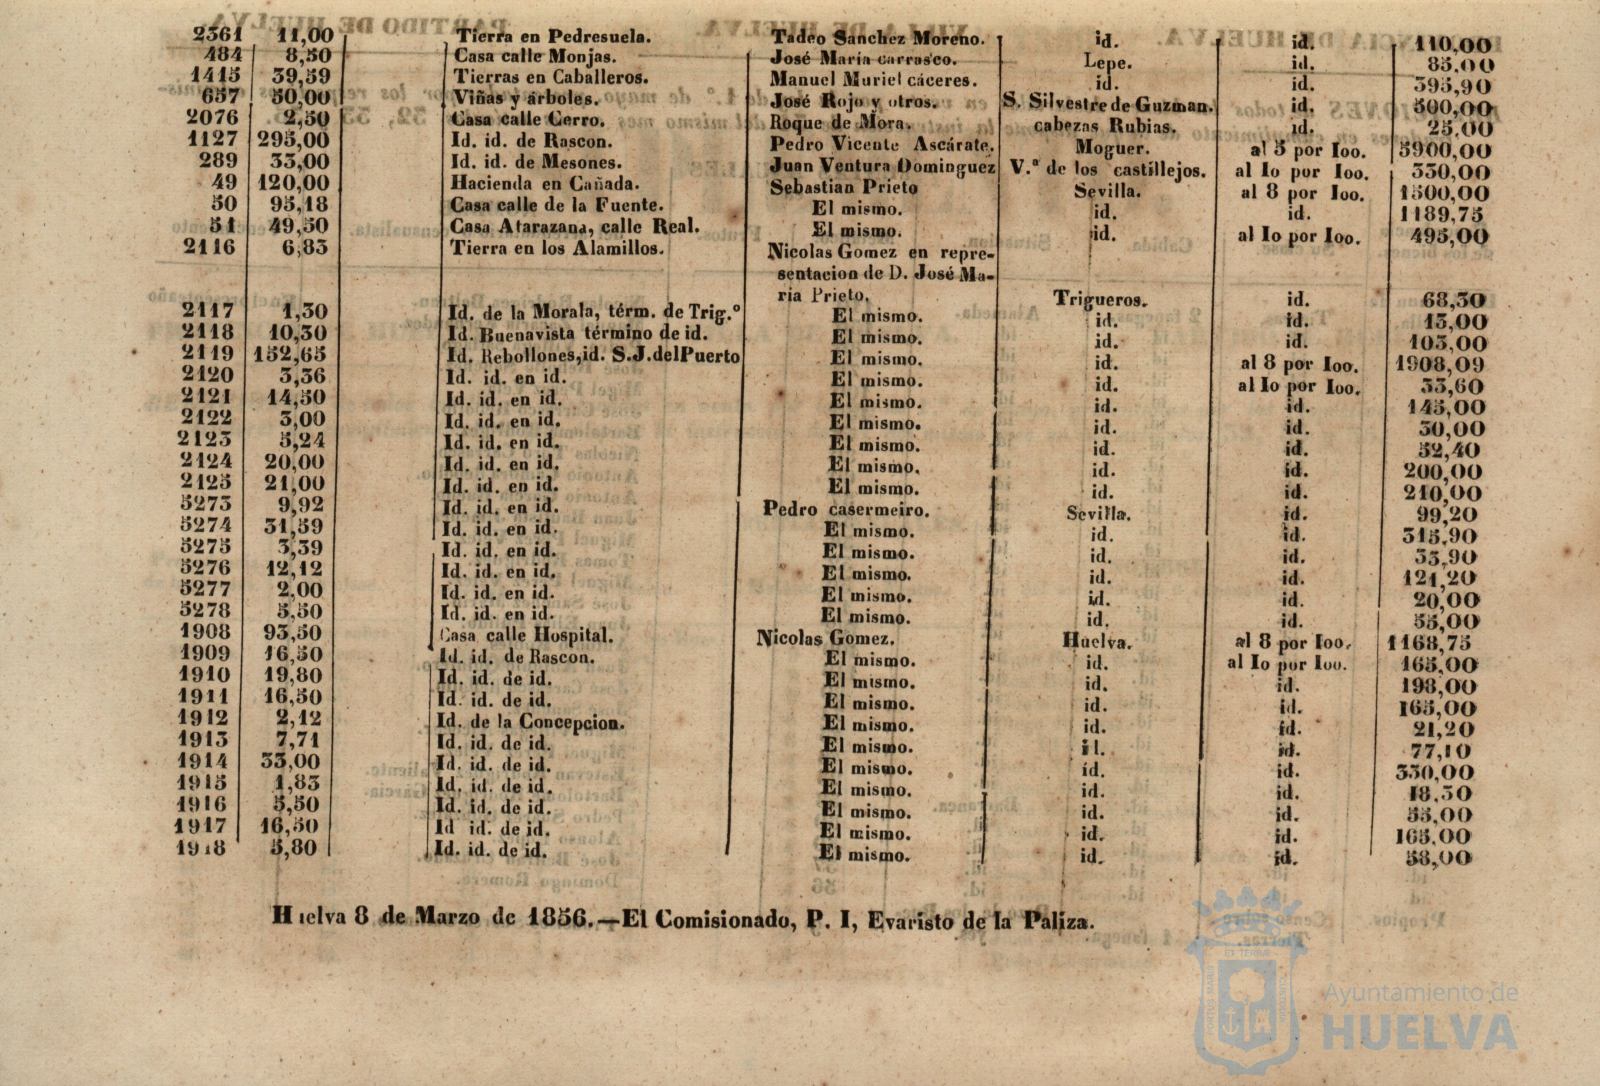 2361 11,00 Tierra en Pedresuela. Tadeo Sanchez Moreno. id. id. 110,00
484 8,50 Casa calle Monjas. José Maria carrasco. Lepe. id. 85,00
1415 39,59 Tierras en Caballeros. Manuel Muriel cáceres. id. id. 395,90
657 50,00 Viñas y árboles. José Rojo y otros. S. Silvestre de Guzman. id. 500,00
2076 2,50 Casa calle Cerro. Roque de Mora. cabezas Rubias. id. 25,00
1127 295,00 Id. id. de Rascon. Pedro Vicente Ascárate. Moguer. al 5 por Ioo. 5900,00
289 33,00 Id. id. de Mesones. Juan Ventura Dominguez V.ª de los castillejos. al Io por Ioo. 330,00
49 120,00 Hacienda en Cañada. Sebastian Prieto Sevilla. al 8 por Ioo. 1500,00
50 95,18 Casa calle de la Fuente. El mismo. id. id. 1189,75
51 49,50 Casa Atarazana, calle Real. El mismo. id. al Io por Ioo. 495,00
2116 6,83 Tierra en los Alamillos. Nicolas Gomez en repre-
sentacion de D. José Ma-
ria Prieto. Trigueros. id. 68,30
2117 1,30 Id. de la Morala, térm. de Trig.º El mismo. id. id. 13,00
2118 10,30 Id. Buenavista término de id. El mismo. id. id. 103,00
2119 152,65 Id. Rebollones, id. S.J. del Puerto El mismo. id. al 8 por Ioo. 1908,09
2120 3,36 Id. id. en id. El mismo. id. al Io por Ioo. 33,60
2121 14,50 Id. id. en id. El mismo. id. id. 145,00
2122 3,00 Id. id. en id. El mismo. id. id. 30,00
2123 5,24 Id. id. en id. El mismo. id. id. 52,40
2124 20,00 Id. id. en id. El mismo. id. id. 200,00
2125 21,00 Id. id. en id. El mismo. id. id. 210,00
5273 9,92 Id. id. en id. Pedro casermeiro. Sevilla. id. 99,20
5274 31,59 Id. id. en id. El mismo. id. id. 315,90
5275 3,39 Id. id. en id. El mismo. id. id. 33,90
5276 12,12 Id. id. en id. El mismo. id. id. 121,20
5277 2,00 Id. id. en id. El mismo. id. id. 20,00
5278 5,50 Id. id. en id. El mismo. id. id. 55,00
1908 93,50 Casa calle Hospital. Nicolas Gomez. Huelva. al 8 por Ioo. 1168,75
1909 16,50 Id. id. de Rascon. El mismo. id. al Io por Ioo. 165,00
1910 19,80 Id. id. de id. El mismo. id. id. 198,00
1911 16,50 Id. id. de id. El mismo. id. id. 165,00
1912 2,12 Id. de la Concepcion. El mismo. id. id. 21,20
1913 7,71 Id. id. de id. El mismo. id. id. 77,10
1914 33,00 Id. id. de id. El mismo. id. id. 330,00
1915 1,83 Id. id. de id. El mismo. id. id. 18,30
1916 5,50 Id. id. de id. El mismo. id. id. 55,00
1917 16,50 Id id. de id. El mismo. id. id. 165,00
1918 5,80 Id. id. de id. El mismo. id. id. 58,00
Huelva 8 de Marzo de 1856.—El Comisionado, P. I, Evaristo de la Paliza.
Ayuntamiento de
HUELVA